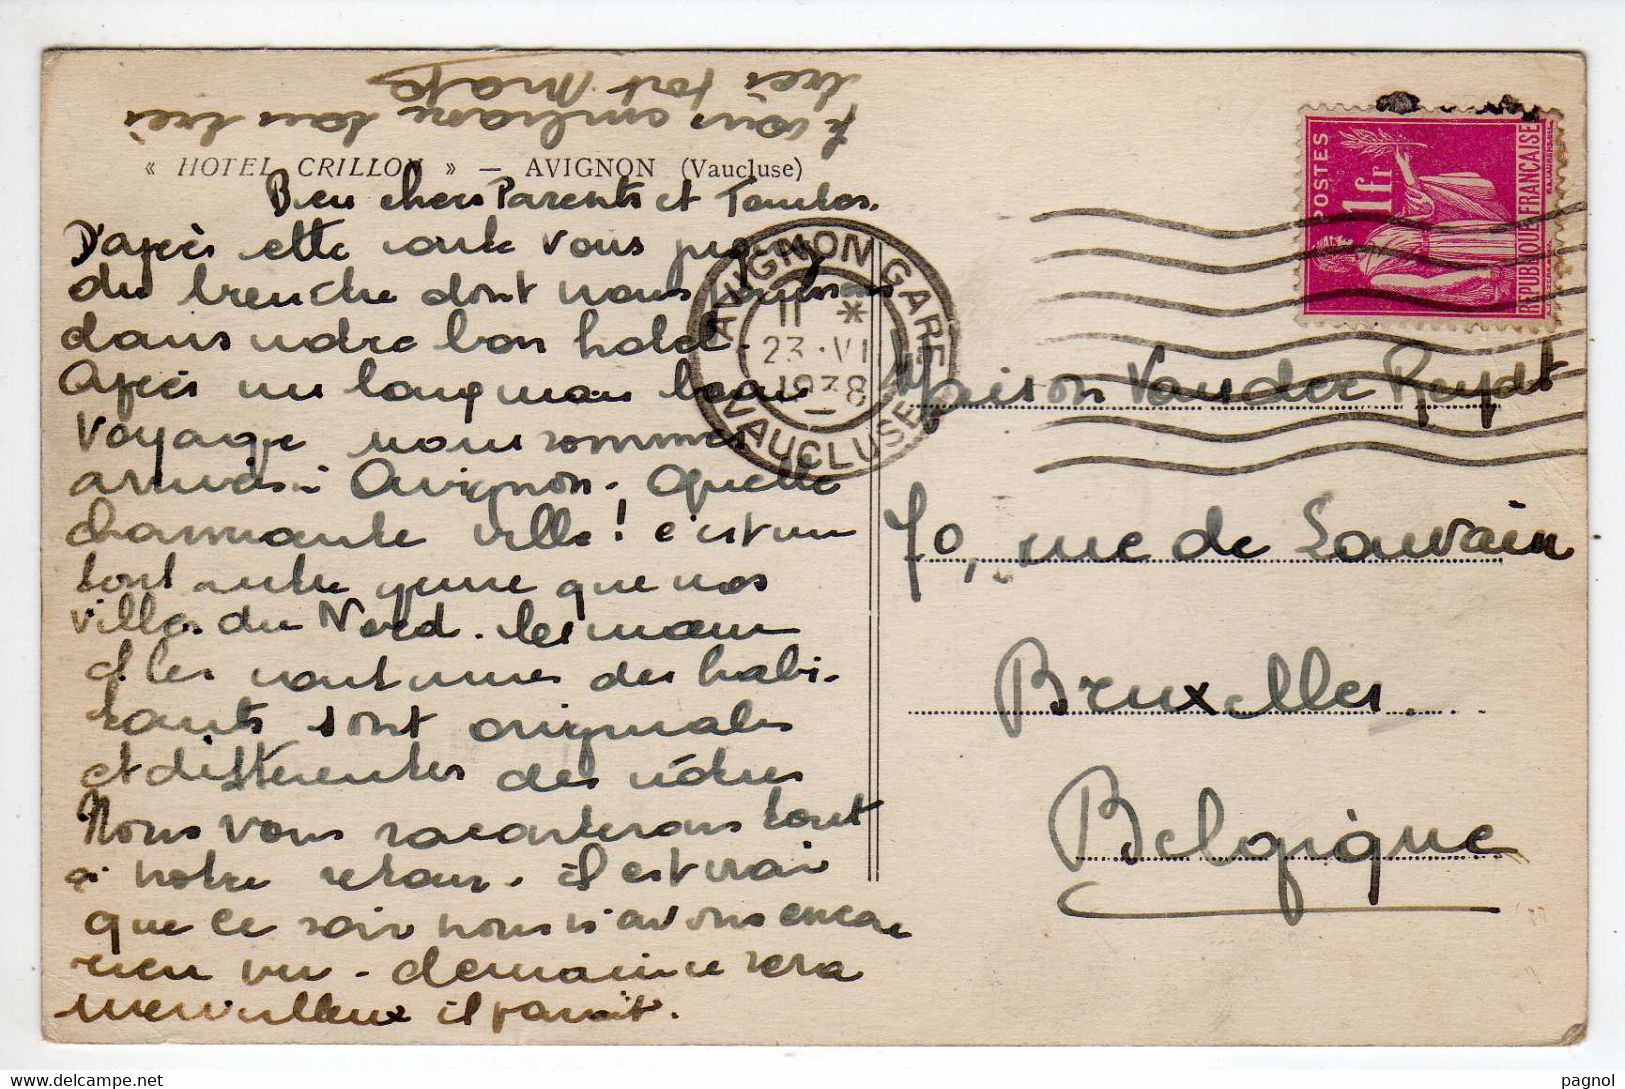 je vous embrasse tous très
très fort
« HOTEL CRILLON » — AVIGNON (Vaucluse)
Bien chers Parents et Tontos.
D'après cette carte vous jugerez
du bien être dont nous jouissons
dans notre bon hotel.
Après un long mais beau
voyage nous sommes
arrivés à Avignon. Quelle
charmante ville! c'est un
tout autre genre que nos
villes du Nord. les mœurs
et les coutumes des habi-
tants sont originales
et différentes des nôtres
Nous vous raconterons tout
à notre retour. il est vrai
que ce soir nous n'avons encore
rien vu - demain ce sera
merveilleux il parait.
AVIGNON GARE
11 *
23 · VI
1938
VAUCLUSE
POSTES
1fr
REPUBLIQUE FRANÇAISE
Maison Van der Reydt
70, rue de Louvain
Bruxelles.
Belgique
pagnol